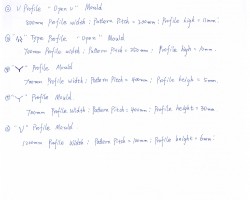 ① U Profile "Open U" Mould
800mm Profile width : Pattern Pitch = 200mm : Profile high = 11mm.
Type Profile "Open" Mould.
700mm Profile width : Pattern Pitch = 350mm : Profile high = 7mm.
Profile Mould
700mm Profile width : Pattern Pitch = 400mm : Profile height = 5mm.
Profile Mould
700mm Profile width : Pattern Pitch = 400mm : Profile height = 30mm.
Profile Mould.
1000mm Profile width : Pattern Pitch = 100mm : Profile height = 6mm.